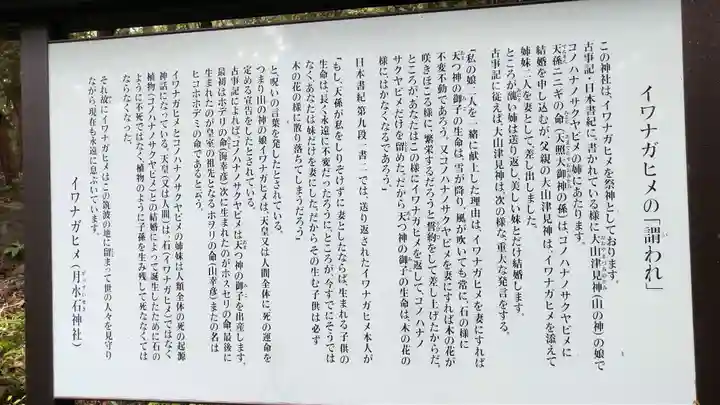 イワナガヒメの「謂われ」
この神社は、イワナガヒメを祭神としております。
古事記・日本書紀に、書かれている様に大山津見神(山の神)の娘で
コノハナノサクヤビメの姉にあたります。
天孫ニニギの命(天照大御神の孫)は、コノハナノサクヤビメに
結婚を申し込むが、父親の大山津見神は、イワナガヒメを添えて
姉妹二人を妻として差し出しました。
ところが醜い姉は送り返し、美しい妹とだけ結婚します。
古事記に従えば、大山津見神は、次の様な、重大な発言をする。
「私の娘二人を一緒に献上した理由は、イワナガヒメを妻にすれば
天つ神の御子の生命は、雪が降り、風が吹いても常に、石の様に
不変不動であろう。又コノハナノサクヤビメを妻にすれば木の花が
咲きほこる様に、繁栄するだろうと誓約をして差し上げたからだ。
ところが、あなたはこの様にイワナガヒメを返して、コノハナノ
サクヤビメだけを留めた。だから天つ神の御子の生命は、木の花の
様に、はかなくなるであろう。」
日本書紀 第九段一書二では、送り返されたイワナガヒメ本人が
「もし、天孫が私をしりぞけずに妻としたならば、生まれる子供の
生命は、長く永遠に不変だったろうに。ところが、今すでにそうでは
なく、あなたは妹だけを妻にした。だからその生む子供は必ず
木の花の様に散り落ちてしまうだろう」
と、呪いの言葉を発したとされている。
つまり山の神の娘イワナガヒメは、天皇又は人間全体に死の運命を
定める宣告をしたとされている。
古事記によれば、コノハナノサクヤビメは天つ神の御子を出産します。
最初はホデリの命(海幸彦)次に生まれたのがホスセリの命、最後に
生まれたのが皇室の祖先となるホヲリの命(山幸彦)またの名は
ヒコホホデミの命であると云う。
イワナガヒメとコノハナノサクヤビメの姉妹は人類全体の死の起源
神話になっている。天皇(又は人間)は、石(イワナガヒメ)ではなく
植物(コノハナノサクヤビメ)との結婚によって誕生したために石の
ように不死ではなく、植物のように子孫を生み残して死ななくては
ならなくなった。
それ故にイワナガヒメはこの筑波の地に留まって世の人々を見守り
ながら、現在も永遠に息ぶいています。
イワナガヒメ(月水石神社)